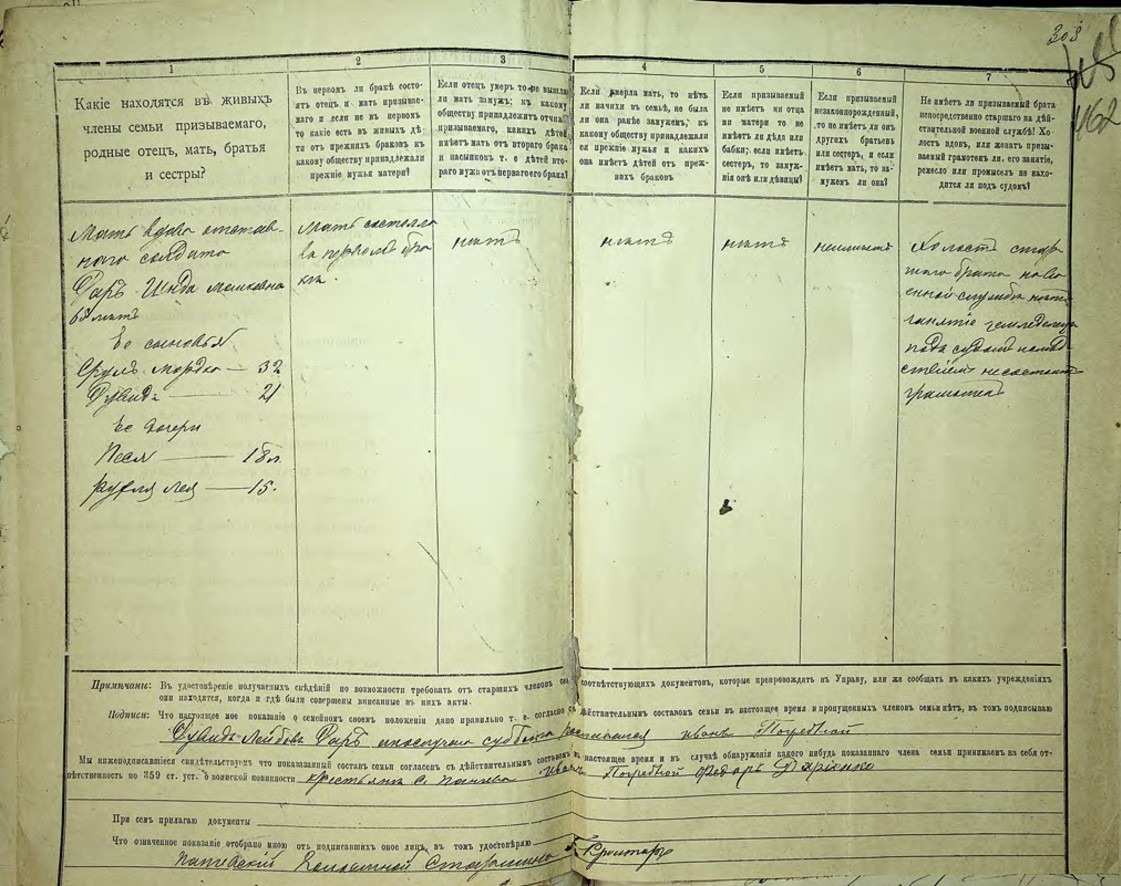 303
462
1
2
3
4
5
6
7
Какіе находятся въ живыхъ
члены семьи призываемаго,
родные отецъ, мать, братья
и сестры?
Въ первомъ ли бракѣ состо-
ятъ отецъ и мать призывае-
маго и если не въ первомъ
то какіе есть въ живыхъ дѣ-
ти отъ прежнихъ браковъ къ
какому обществу принадлежали
прежніе мужья матери?
Если отецъ умеръ то не вышла
ли мать замужъ; къ какому
обществу принадлежитъ отчимъ
призываемаго, какихъ дѣтей
имѣетъ мать отъ втораго брака
и пасынковъ т. е дѣтей вто-
раго мужа отъ перваго его брака?
Если умерла мать, то нѣтъ
ли мачихи въ семьѣ, не была
ли она ранѣе замужемъ, къ
какому обществу принадлежали
ея прежніе мужья и какихъ
она имѣетъ дѣтей отъ преж-
нихъ браковъ
Если призываемый
не имѣетъ ни отца
ни матери то не
имѣетъ ли дѣда или
бабки; если имѣетъ
сестеръ, то замуж-
нія онѣ или дѣвицы?
Если призываемый
незаконнорожденный,
то не имѣетъ ли онъ
другихъ братьевъ
или сестеръ, и если
имѣетъ мать, то за-
мужемъ ли она?
Не имѣетъ ли призываемый брата
непосредственно старшаго на дѣй-
ствительной военной службѣ? Хо-
лостъ вдовъ, или женатъ призы-
ваемый грамотенъ ли, его занятіе,
ремесло или промыселъ не нахо-
дится ли подъ судомъ?
Мать вдова отстав-
наго солдата
Фаръ Инда
65 лѣтъ
Ее сыновья
Сруль Мордко — 32
Дувидъ — 21
Ее дочери
Песя — 18 л.
Рухля Лея — 15.
Мать состояла
въ первомъ бра
кѣ.
нѣтъ
нѣтъ
нѣтъ
неимѣетъ
Холостъ стар
шаго брата на во
енной службѣ нѣтъ
занятіе земледѣлецъ
подъ судомъ и слѣд
ствіемъ несостоитъ
грамотенъ
Примѣчаніе: Въ удостовѣреніе получаемыхъ свѣдѣній по возможности требовать отъ старшихъ членовъ сем соотвѣтствующихъ документовъ, которые препровождать въ Управу, или же сообщать въ какихъ учрежденіяхъ
они находятся, когда и гдѣ были совершены внесенные въ нихъ акты.
Подписи: Что настоящее мое показаніе о семейномъ своемъ положеніи дано правильно т. е. согласно съ дѣйствительнымъ составомъ семьи въ настоящее время и пропущенныхъ членовъ семьи нѣтъ, въ томъ подписываю
Дувидъ Лейбовъ Фаръ а послучаю субботы росписался Иванъ Погребной
Мы нижеподписавшіеся свидѣтельствуемъ что показанный составъ семьи согласенъ съ дѣйствительнымъ составомъ въ настоящее время и въ случаѣ обнаруженія какого нибудь показаннаго члена семьи принимаемъ на себя от-
вѣтственность по 359 ст. уст. о воинской повинности крестьяне с. Иванъ Погребной Федоръ
При семъ прилагаю документы
Что означенное показаніе отобрано мною отъ подписавшихъ оное лицъ, въ томъ удостовѣряю
Волостной Старшина